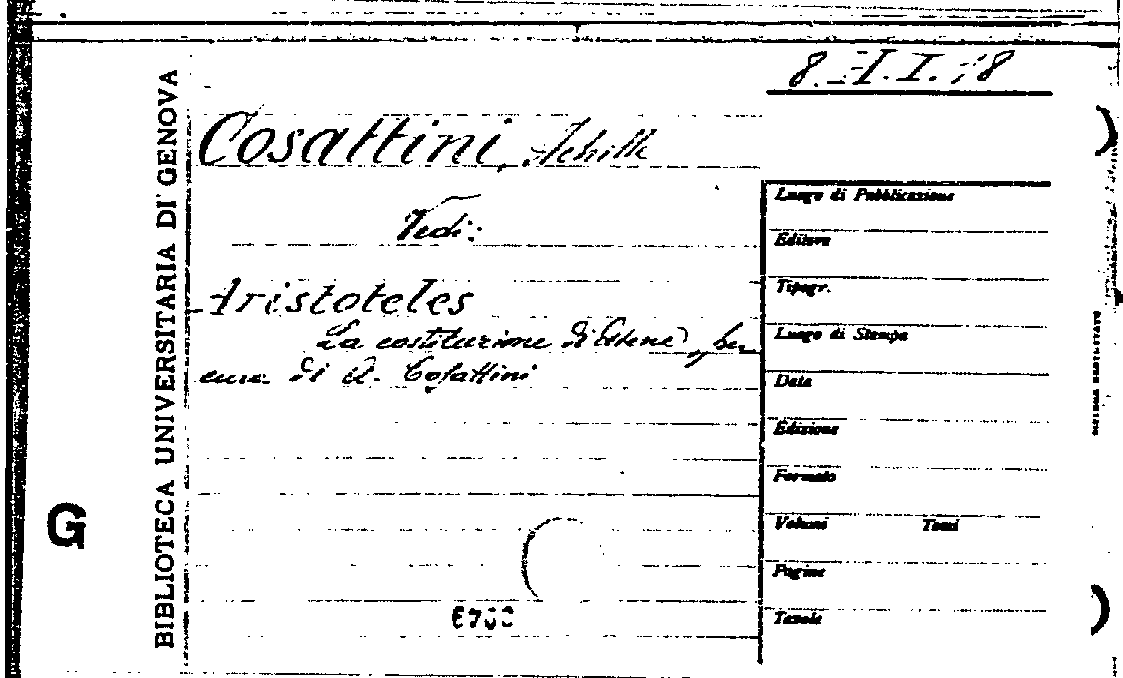 8. I. I. 18
Cosattini, Achille
Vedi:
Aristoteles
La costituzione di Atene, per
cura di A. Cosattini
BIBLIOTECA UNIVERSITARIA DI GENOVA
G
Luogo di Pubblicazione
Editore
Tipogr.
Luogo di Stampa
Data
Edizione
Formato
Volumi Tomi
Pagine
Tavole